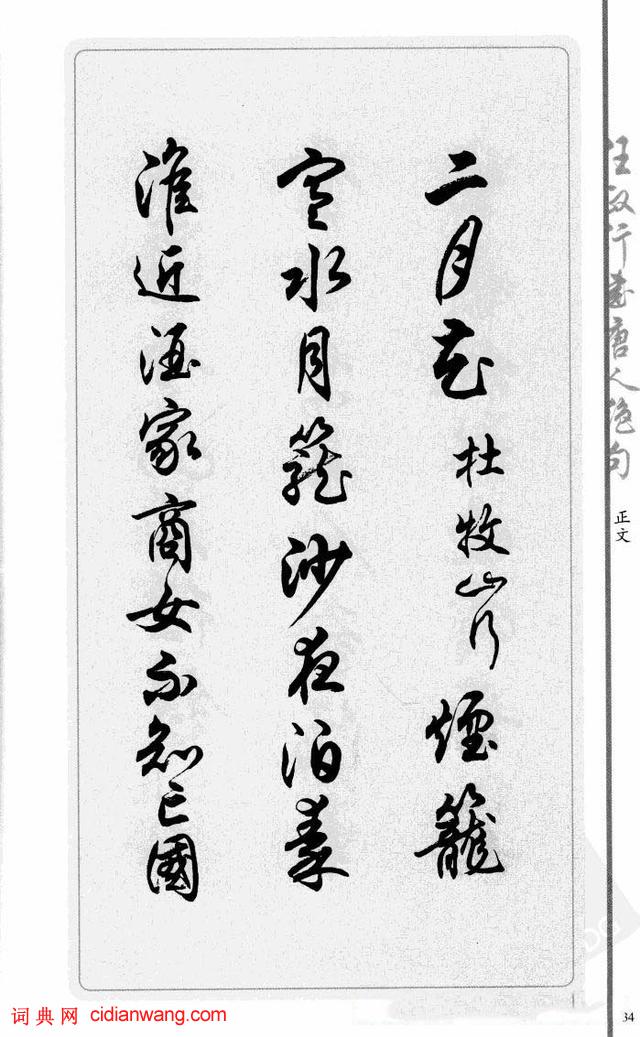 任政行書唐人絕句
正文
二月花 杜牧山行 煙籠
寒水月籠沙夜泊秦
淮近酒家商女不知亡國
词典网 cidianwang.com
34